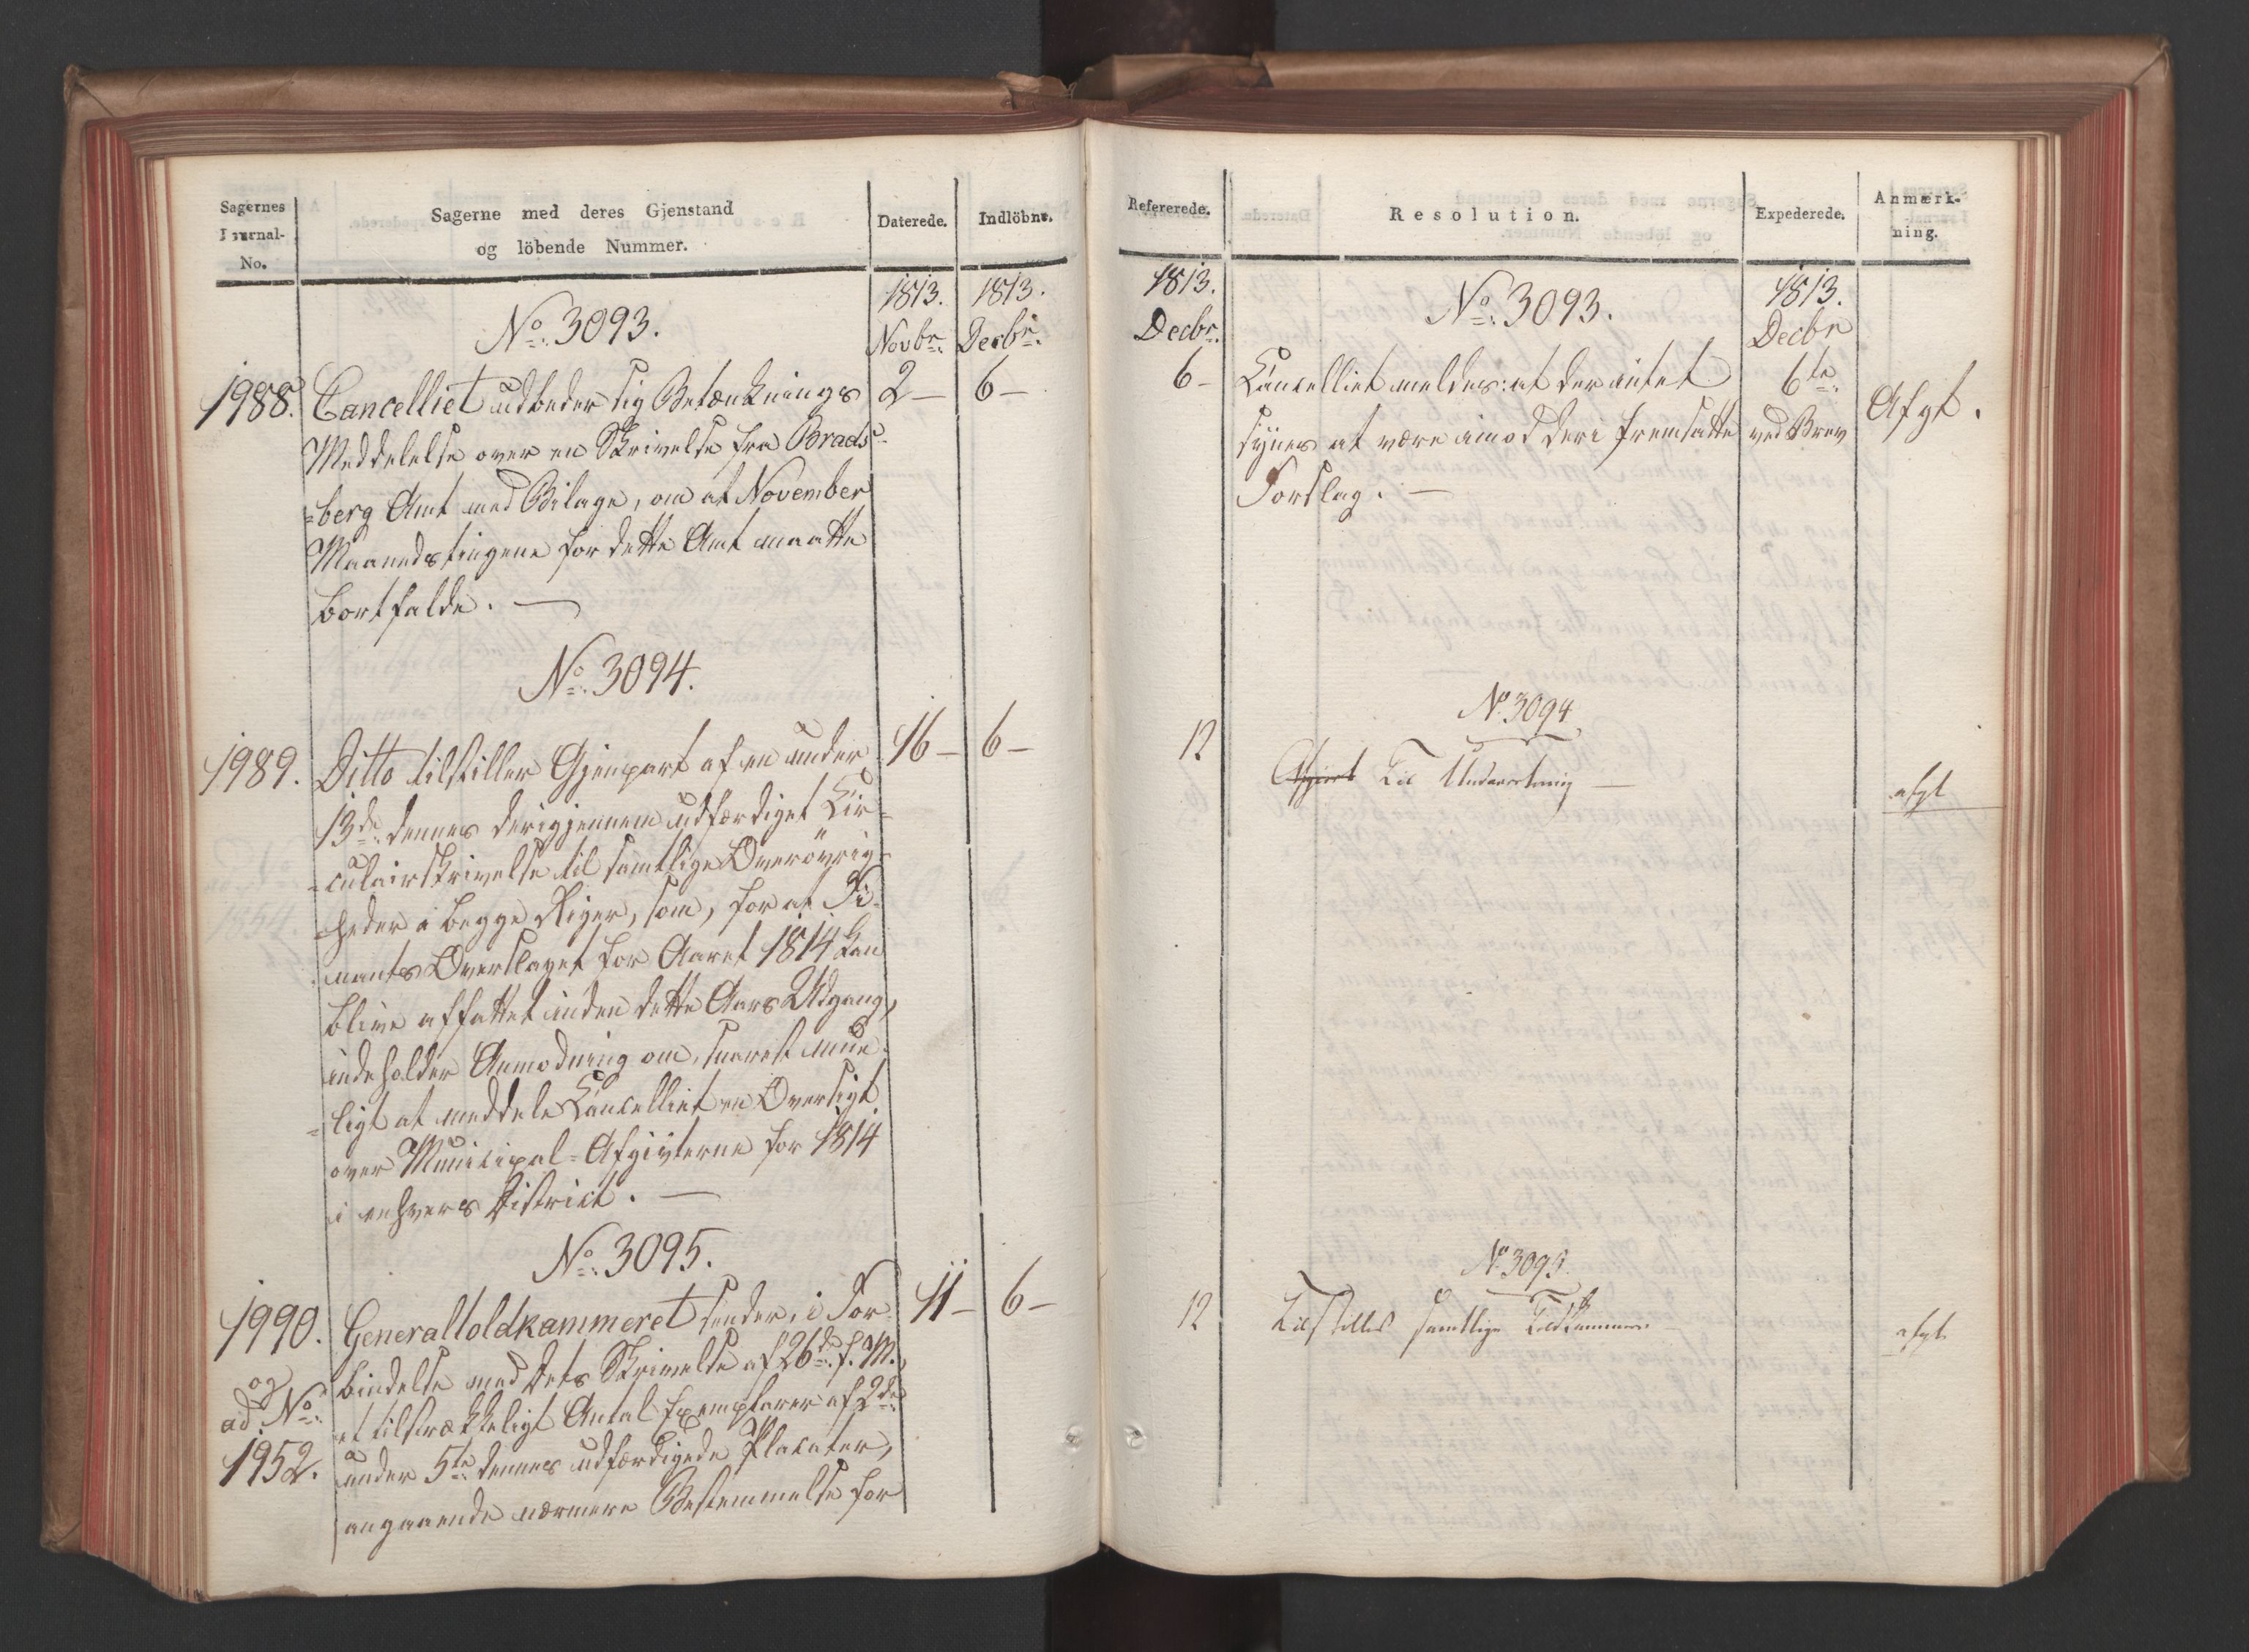 Sagernes
Journal-
No.
Sagerne med deres Gjenstand
og löbende Nummer.
Daterede.
Indlöbne.
1813.
1813.
Novbr.
Decbr.
No. 3093.
1988.
Cancelliet udbeder sig Betænknings
2 —
6 —
Meddelelse over en Skrivelse fra Brads-
=berg Amt med Bilage, om at November
Maanedstingene for dette Amt maatte
bortfalde. —
No. 3094.
1989.
Ditto tilstiller Gjenpart af en under
16 —
6 —
13de dennes derigjennem udfærdiget Cir-
=culairskrivelse til samtlige Overövrig-
=heder i begge Riger, som, for at Fi-
nants Overslaget for Aaret 1814 kan
blive affattet inden dette Aars Udgang,
indeholder Anmodning om, snarest mue-
=ligt at meddele Cancelliet en Oversigt
over Municipal-Afgivterne for 1814
i enhvers District. —
No. 3095.
1990.
Generaltoldkammeret sender, i For-
11 —
6 —
bindelse med dets Skrivelse af 26de f. M.,
og
ad No.
et tilstrækkeligt Antal Exemplarer af 2de
1952.
under 5te dennes udfærdigede Placater,
angaaende nærmere Bestemmelse for
Refererede.
Resolution.
Expederede.
Anmærk-
ning.
1813.
Decbr.
1813.
Decbr
No. 3093.
6 –
Cancelliet meldes: at der intet
6te
Afgt.
synes at være imod deri fremsatte
ved Brev
Forslag. —
No. 3094
12
Afgiort Til Underretning —
afgt
No. 3095.
12
Tilstilles samtlige Toldkammere
afgt